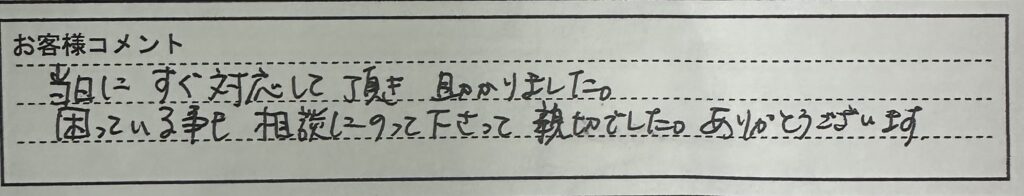 お客様コメント
当日に すぐ対応して 頂き 助かりました。
困っている事も 相談にのって下さって 親切でした。ありがとうございます